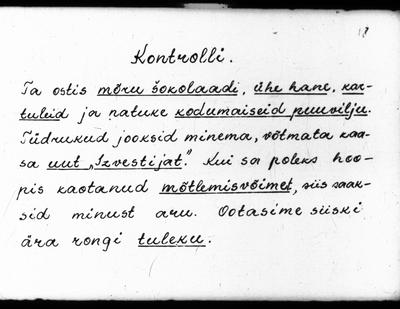 Kontrolli.
Ta ostis mõru šokolaadi, ühe hane, kar-
tuleid ja natuke kodumaiseid puuvilju.
Tüdrukud jooksid minema, võtmata kaa-
sa uut „Izvestijat". Kui sa poleks hoo-
pis kaotanud mõtlemisvõimet, siis saak-
sid minust aru. Ootasime siiski
ära rongi tuleku.